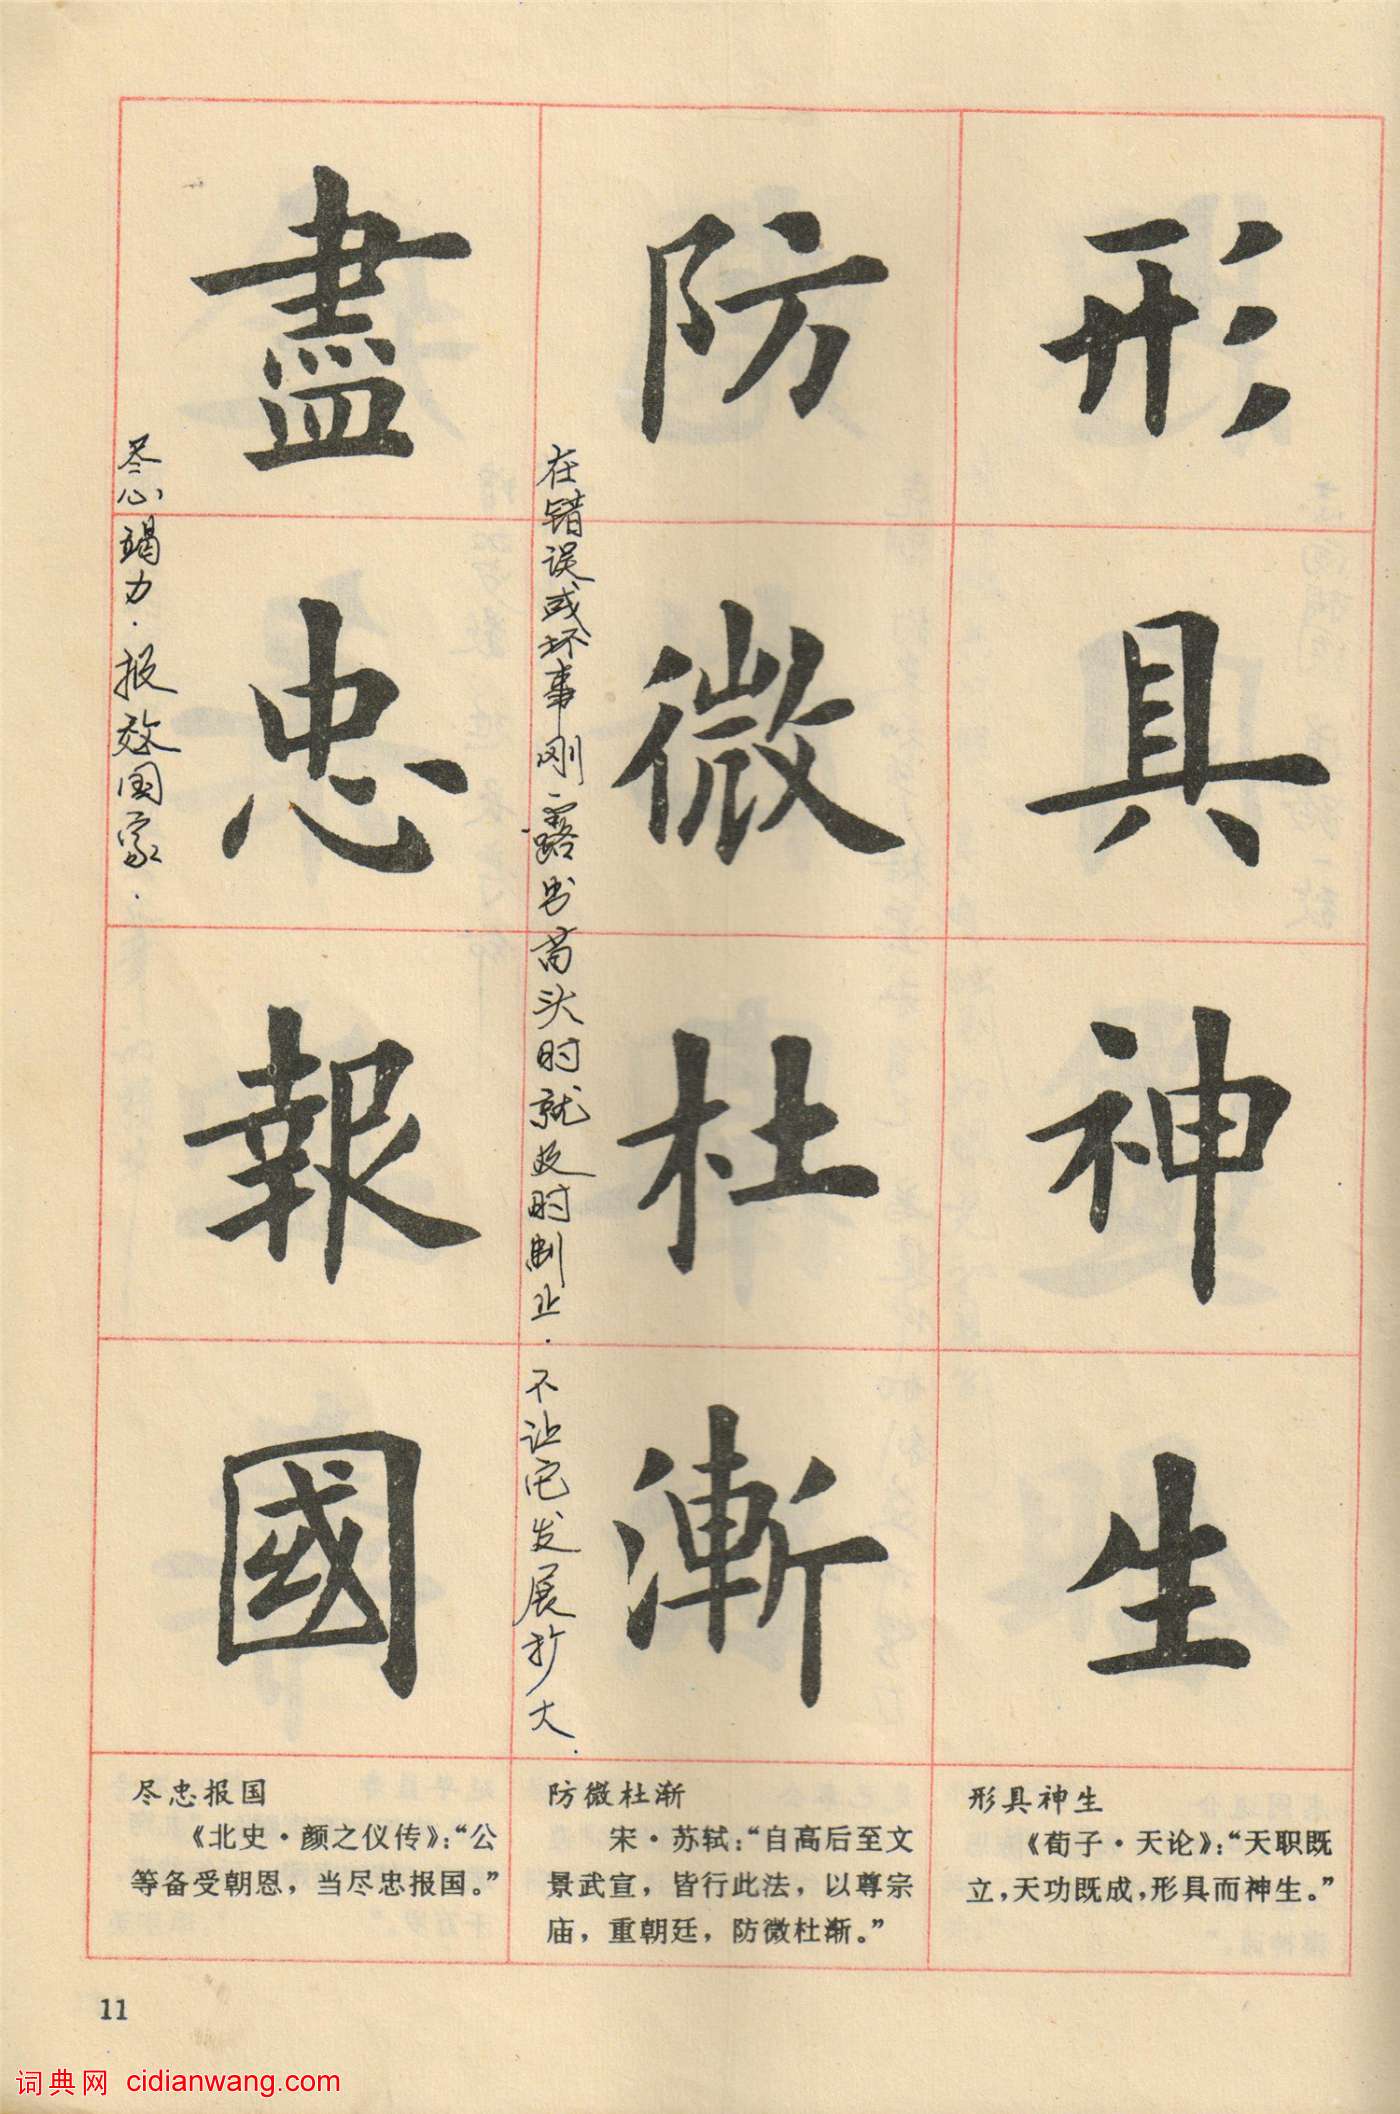 形具神生
防微杜漸
在错误或坏事刚露出苗头时就及时制止.不让它发展扩大.
盡忠報國
尽心竭力.报效国家.
形具神生
《荀子·天论》:“天职既
立,天功既成,形具而神生。”
防微杜渐
宋·苏轼:“自高后至文
景武宣,皆行此法,以尊宗
庙,重朝廷,防微杜渐。”
尽忠报国
《北史·颜之仪传》:“公
等备受朝恩,当尽忠报国。”
11
词典网 cidianwang.com